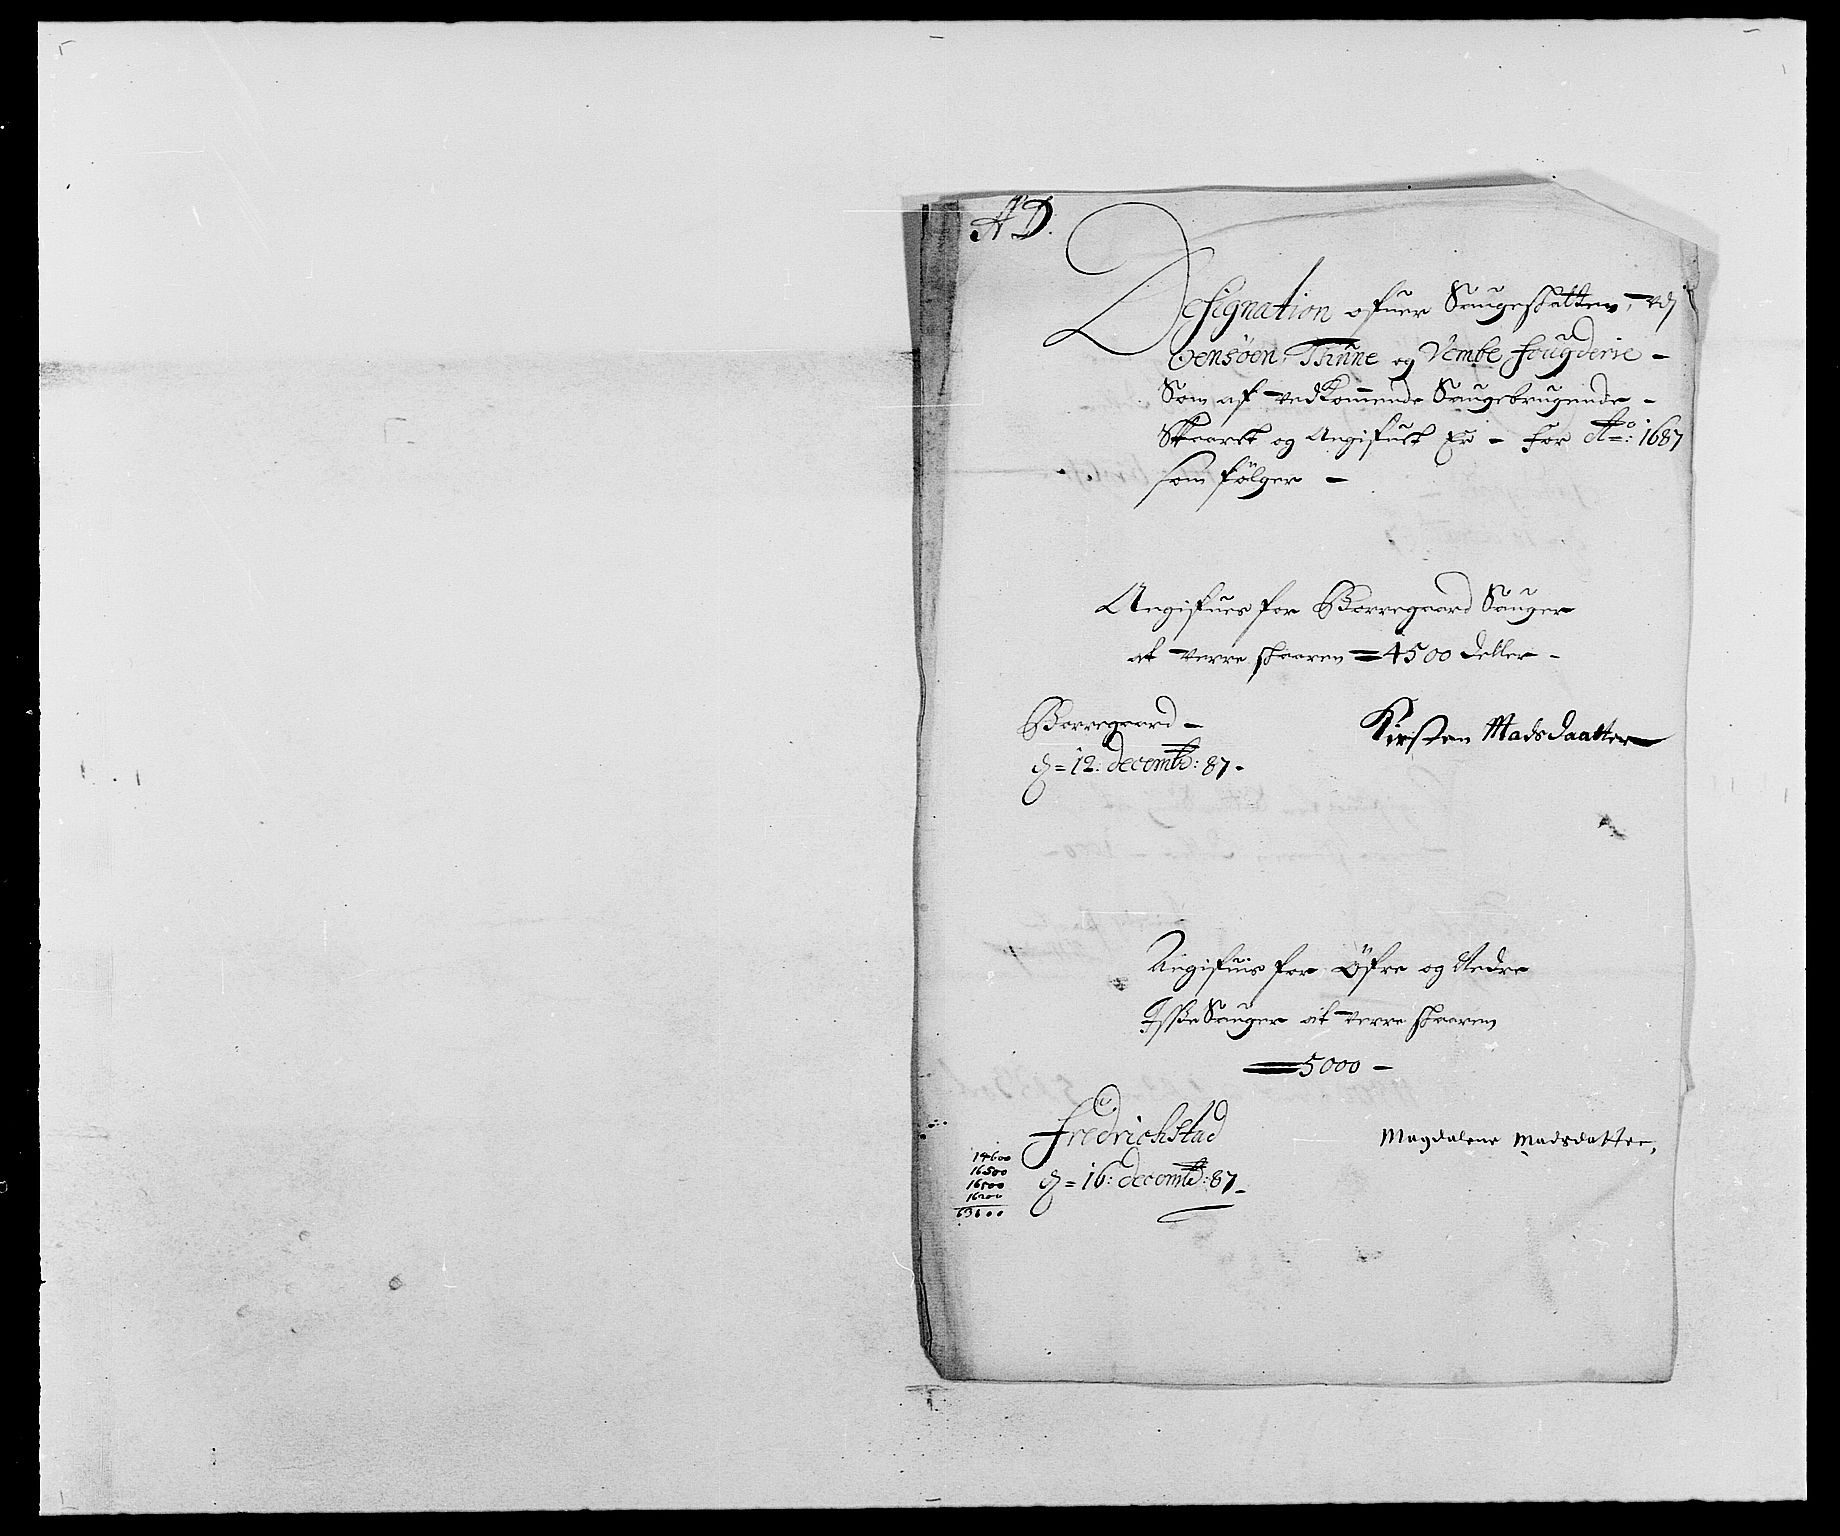 AD.
Designation ofuer Saugeskatten, udj
Oensøen, Thune og Vembe fougderie -
Som af vedkommende Saugebrugende -
Skaaret og Angifuet Er - for Ao: 1687
som følger -
Angifues for Borregaard Sauger
at verre skaaren = 4500 deller -
Borregaard -
d = 12. decembr: 87 -
Kirsten Madsdaatter
Angifuis for Öfre og Nedre
Sauger at verre skaaren
5000 -
fredrichstad
d = 16: decembr: 87 -
Magdalene Madsdatter,
14600
16500
16500
16200
63600